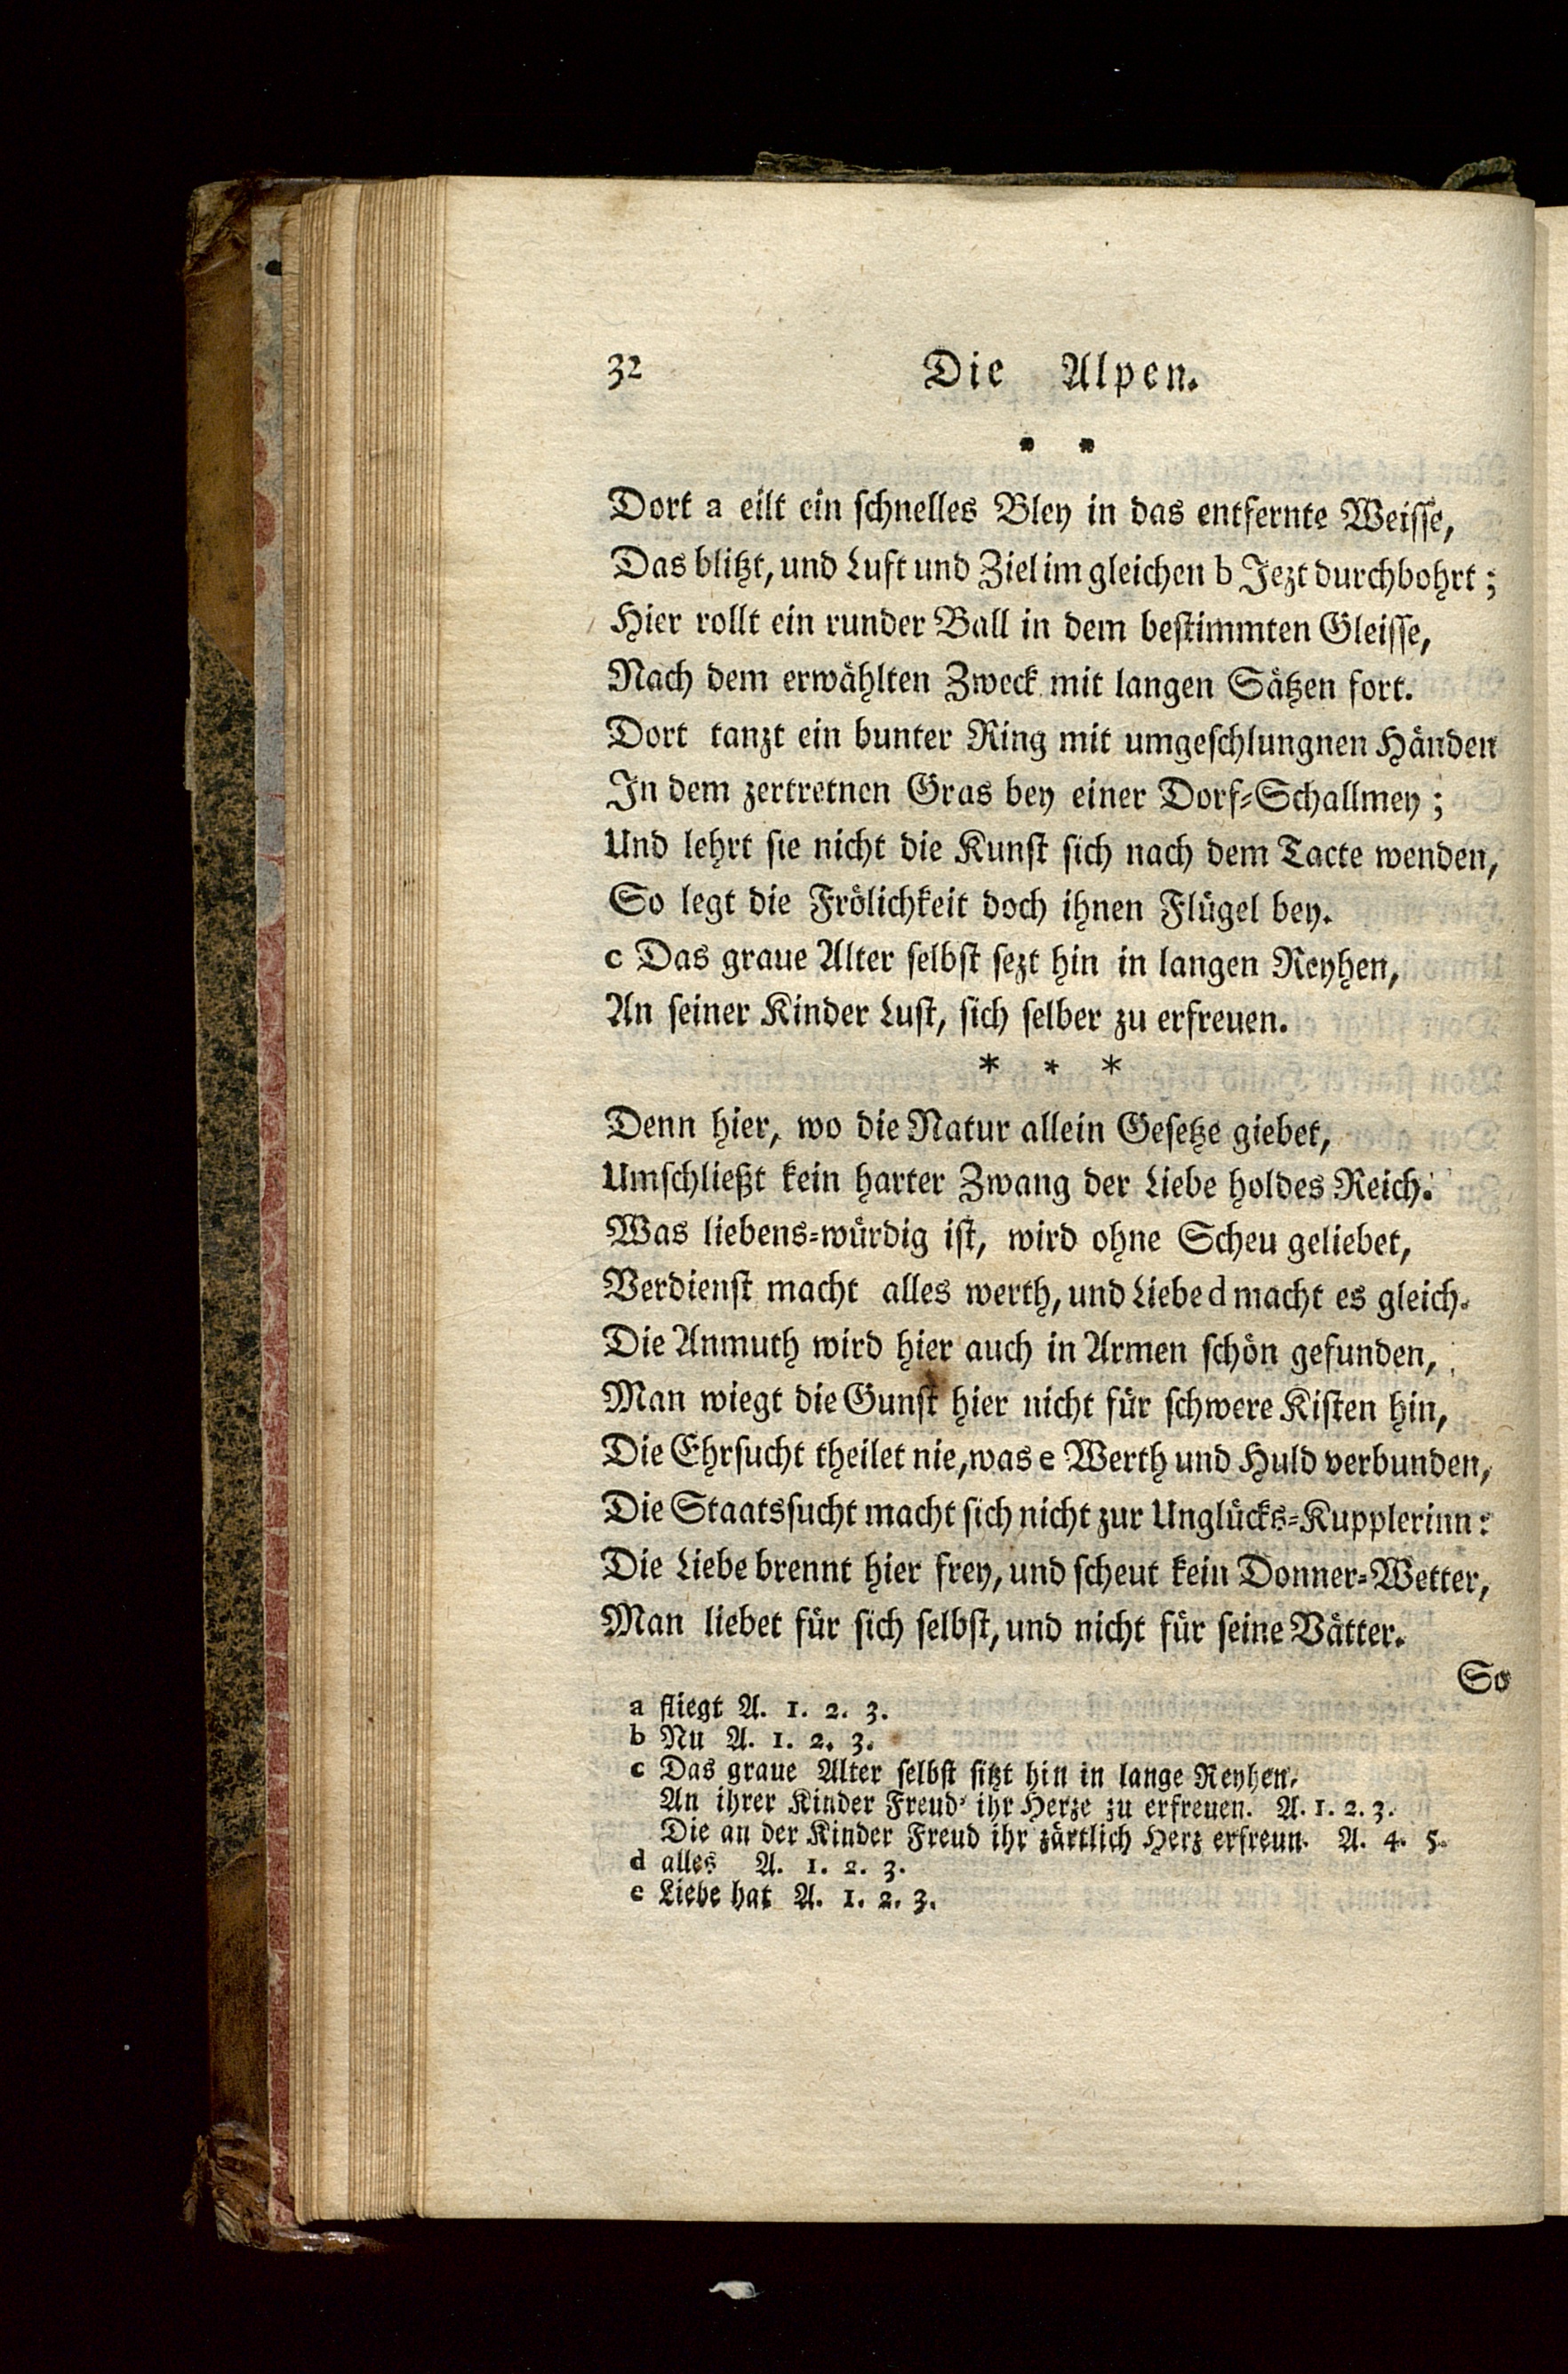 32 Die Alpen.
* *
Dort a eilt ein schnelles Bley in das entfernte Weisse,
Das blitzt, und Luft und Ziel im gleichen b Jezt durchbohrt;
Hier rollt ein runder Ball in dem bestimmten Gleisse,
Nach dem erwählten Zweck mit langen Sätzen fort.
Dort tanzt ein bunter Ring mit umgeschlungnen Händen
In dem zertretnen Gras bey einer Dorf-Schallmey;
Und lehrt sie nicht die Kunst sich nach dem Tacte wenden,
So legt die Frölichkeit doch ihnen Flügel bey.
c Das graue Alter selbst sezt hin in langen Reyhen,
An seiner Kinder Lust, sich selber zu erfreuen.
* * *
Denn hier, wo die Natur allein Gesetze giebet,
Umschließt kein harter Zwang der Liebe holdes Reich.
Was liebens-würdig ist, wird ohne Scheu geliebet,
Verdienst macht alles werth, und Liebe d macht es gleich.
Die Anmuth wird hier auch in Armen schön gefunden,
Man wiegt die Gunst hier nicht für schwere Kisten hin,
Die Ehrsucht theilet nie, was e Werth und Huld verbunden,
Die Staatssucht macht sich nicht zur Unglücks-Kupplerinn:
Die Liebe brennt hier frey, und scheut kein Donner-Wetter,
Man liebet für sich selbst, und nicht für seine Vätter.
So
a fliegt A. 1. 2. 3.
b Nu A. 1. 2. 3.
c Das graue Alter selbst sitzt hin in lange Reyhen,
An ihrer Kinder Freud' ihr Herze zu erfreuen. A. 1. 2. 3.
Die an der Kinder Freud ihr zärtlich Herz erfreun. A. 4. 5.
d alles A. 1. 2. 3.
e Liebe hat A. 1. 2. 3.